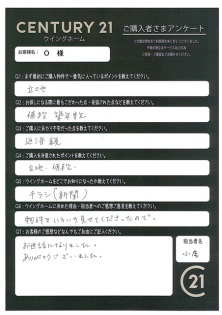 CENTURY 21
ウイングホーム
ご購入者さまアンケート
お客様名: O 様
Q1:まず最初にご購入物件で一番気に入っているポイントを教えてください。
立地
Q2:お探しになる際に最もこだわった点・重視された点などを教えてください。
値段
Q3:ご購入にあたり不安だった点を教えてください。
Q4:ご購入を決意されたポイントを教えてください。
立地、値段
Q5:ウイングホームをどこでお知りになったか教えてください。
チラシ(新聞)
Q6:ウイングホームに決めた理由・担当者へのご感想ご意見を教えてください。
物件をいろいろ見せてくださったので。
Q7:お客様のご感想などなんでもご自由にご記入ください。
お世話になりました。
ありがとうございました。
担当者名
C21